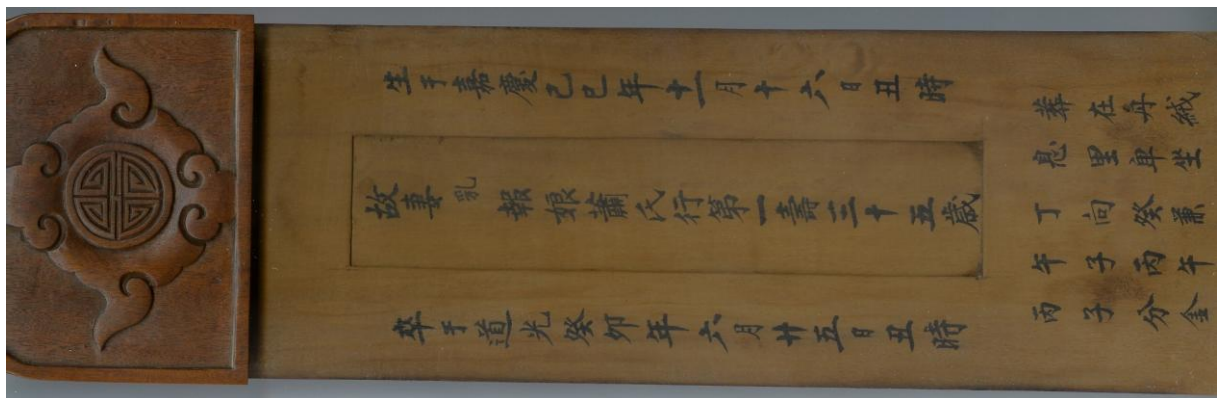 生于嘉慶己巳年十一月十六日丑時
故妻乳報娘蕭氏行第一壽三十五歲
卒于道光癸卯年六月廿五日丑時
葬在舟
息里車坐
丁向癸兼
午子丙午
丙子分金